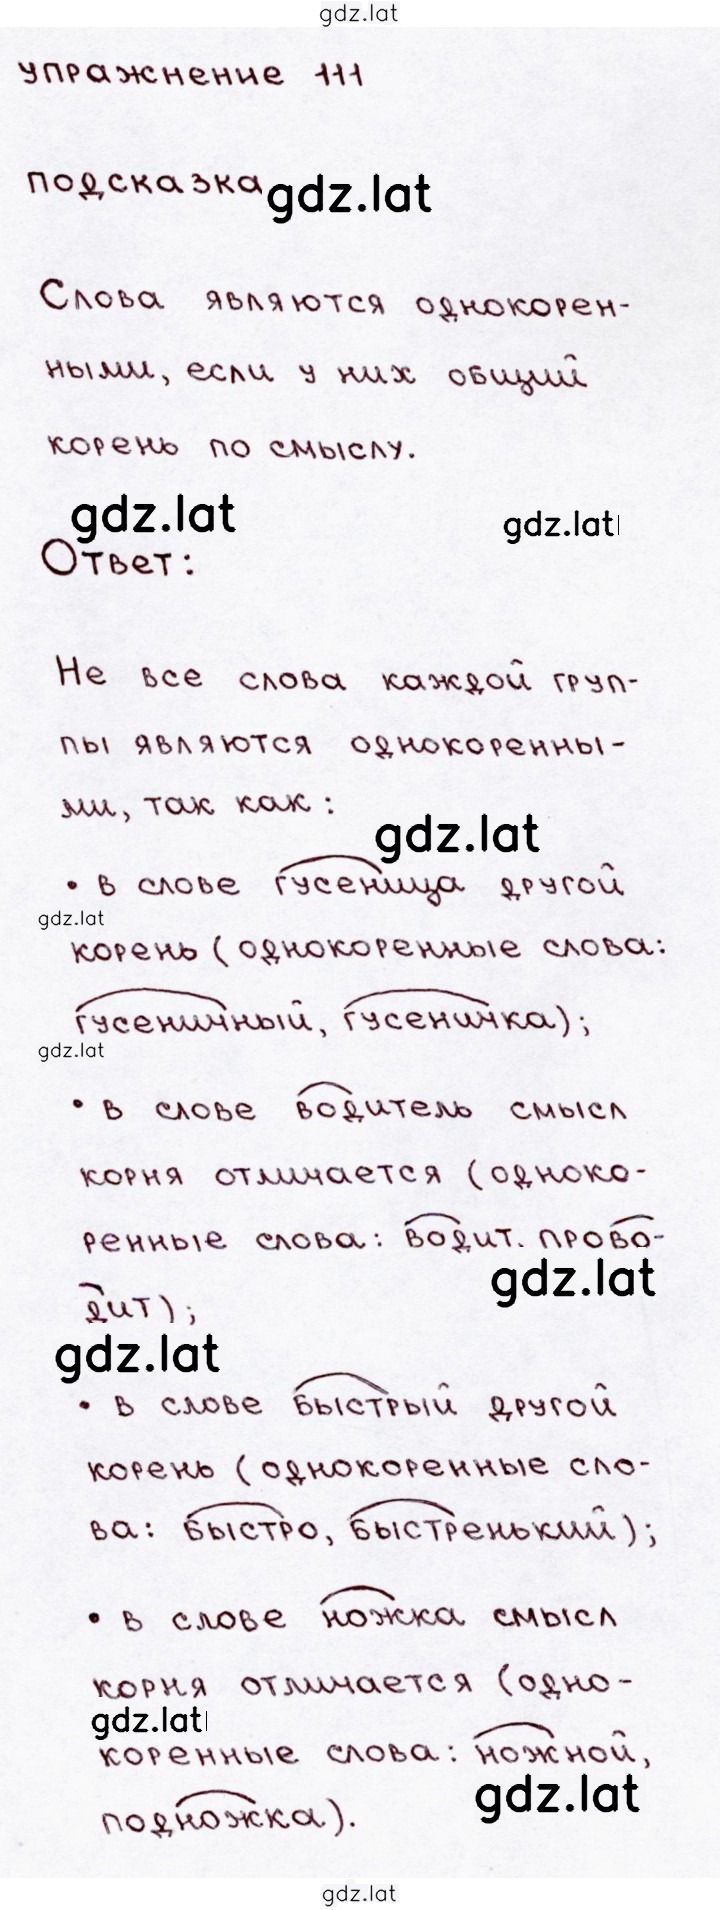 gdz.lat
упражнение 111
подсказка gdz.lat
Слова являются однокорен-
ными, если у них общий
корень по смыслу.
gdz.lat gdz.lat
Ответ:
Не все слова каждой груп-
пы являются однокоренны-
ми, так как:
gdz.lat
• в слове гусеница другой
gdz.lat
корень (однокоренные слова:
гусеничный, гусеничка);
gdz.lat
• в слове водитель смысл
корня отличается (одноко-
ренные слова: водит. прово-
gdz.lat
дит);
gdz.lat
• в слове быстрый другой
корень (однокоренные сло-
ва: быстро, быстренький);
• в слове ножка смысл
корня отличается (одно-
gdz.lat
коренные слова: ножной,
gdz.lat
подножка).
gdz.lat